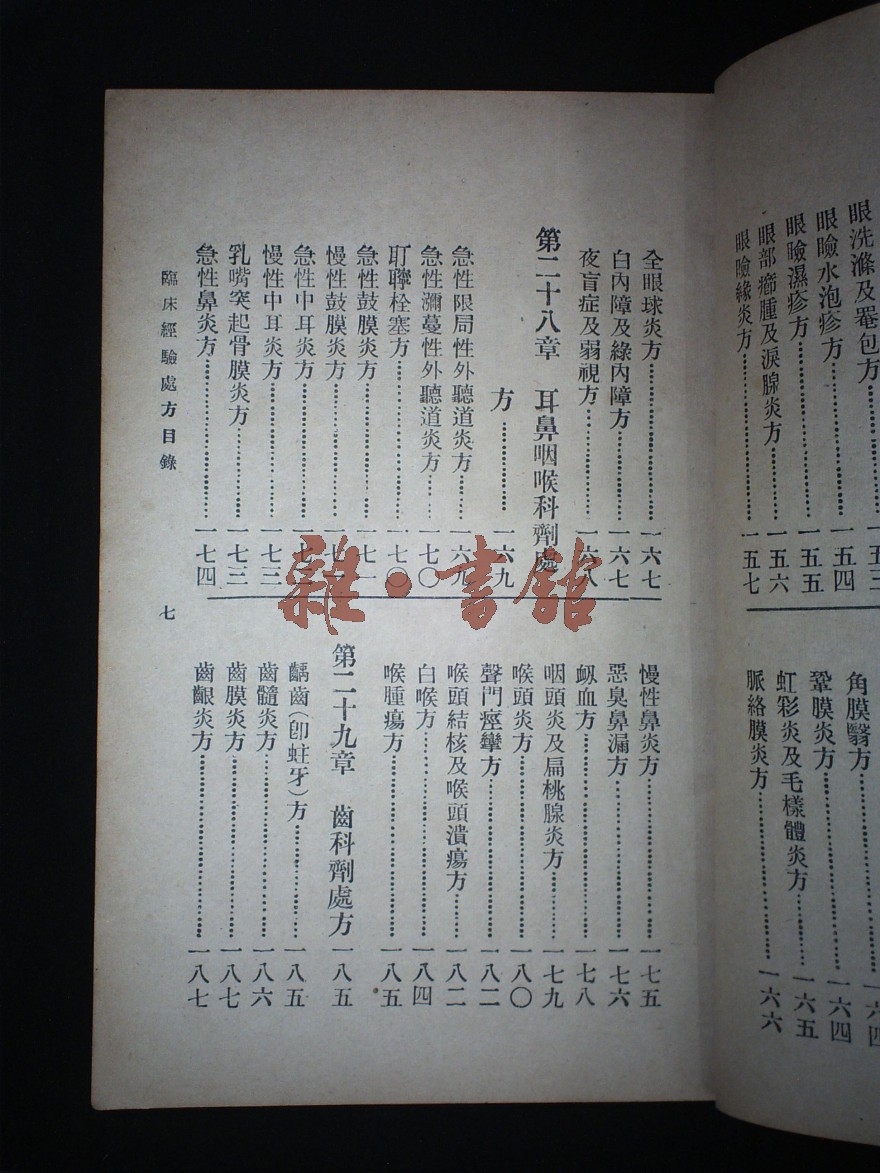 眼洗滌及罨包方…………一五三
眼瞼水泡疹方…………一五四
眼瞼濕疹方…………一五五
眼部癤腫及淚腺炎方…………一五六
眼瞼緣炎方…………一五七
角膜翳方…………一六四
鞏膜炎方…………一六四
虹彩炎及毛樣體炎方…………一六五
脈絡膜炎方…………一六六
全眼球炎方…………一六七
白內障及綠內障方…………一六七
夜盲症及弱視方…………一六八
第二十八章 耳鼻咽喉科劑處
方…………一六九
急性限局性外聽道炎方…………一六九
急性瀰蔓性外聽道炎方……一七〇
耵聹栓塞方…………一七〇
急性鼓膜炎方…………一七一
慢性鼓膜炎方…………一七
急性中耳炎方…………一七
慢性中耳炎方…………一七三
乳嘴突起骨膜炎方…………一七三
急性鼻炎方…………一七四
慢性鼻炎方…………一七五
惡臭鼻漏方…………一七六
衂血方…………一七八
咽頭炎及扁桃腺炎方…………一七九
喉頭炎方…………一八〇
聲門痙攣方…………一八二
喉頭結核及喉頭潰瘍方……一八二
白喉方…………一八四
喉腫瘍方…………一八五
第二十九章 齒科劑處方 一八五
齲齒(卽蛀牙)方…………一八五
齒髓炎方…………一八六
齒膜炎方…………一八七
齒齦炎方…………一八七
臨床經驗處方目錄
七
雜·書館